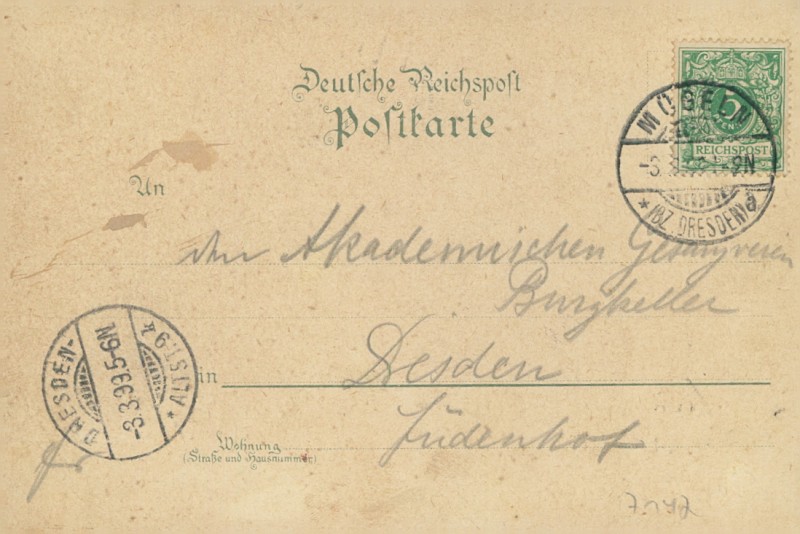 Deutsche Reichspost
Postkarte
5
REICHSPOST
MÜGELN
(BZ. DRESDEN) a
An
den Akademischen Gesangverein
Burgkeller
in Dresden
Jüdenhof
Wohnung
(Straße und Hausnummer)
DRESDEN-
-3.3.99.5-6N
ALTST. 9 k